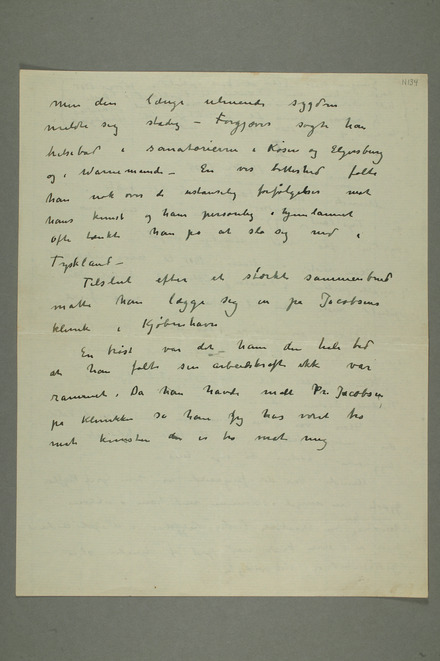 N 134
men den længe ulmende sygdom
meldte sig stadig – Forgjæves søgte han
helsebad i sanatorierne i Kösen og Elgersburg
og i Warnemünde – En vis bitterhed følte
han nok over de ustanselig forfølgelser mod
hans kunst og ham personlig i hjemlandet
ofte tænkte han på at slå sig ned i
Tyskland –
Tilslut efter et stærkt sammenbrud
måtte han lægge sig in på Jacobsens
klinik i Kjøbenhavn
En trøst var det ham den hele tid
at han følte sin arbeidskraft ikke var
rammet. Da han havde malt Pr. Jacobsen
på klinikken sa han Jeg har været tro
mod kunsten den er tro mod mig